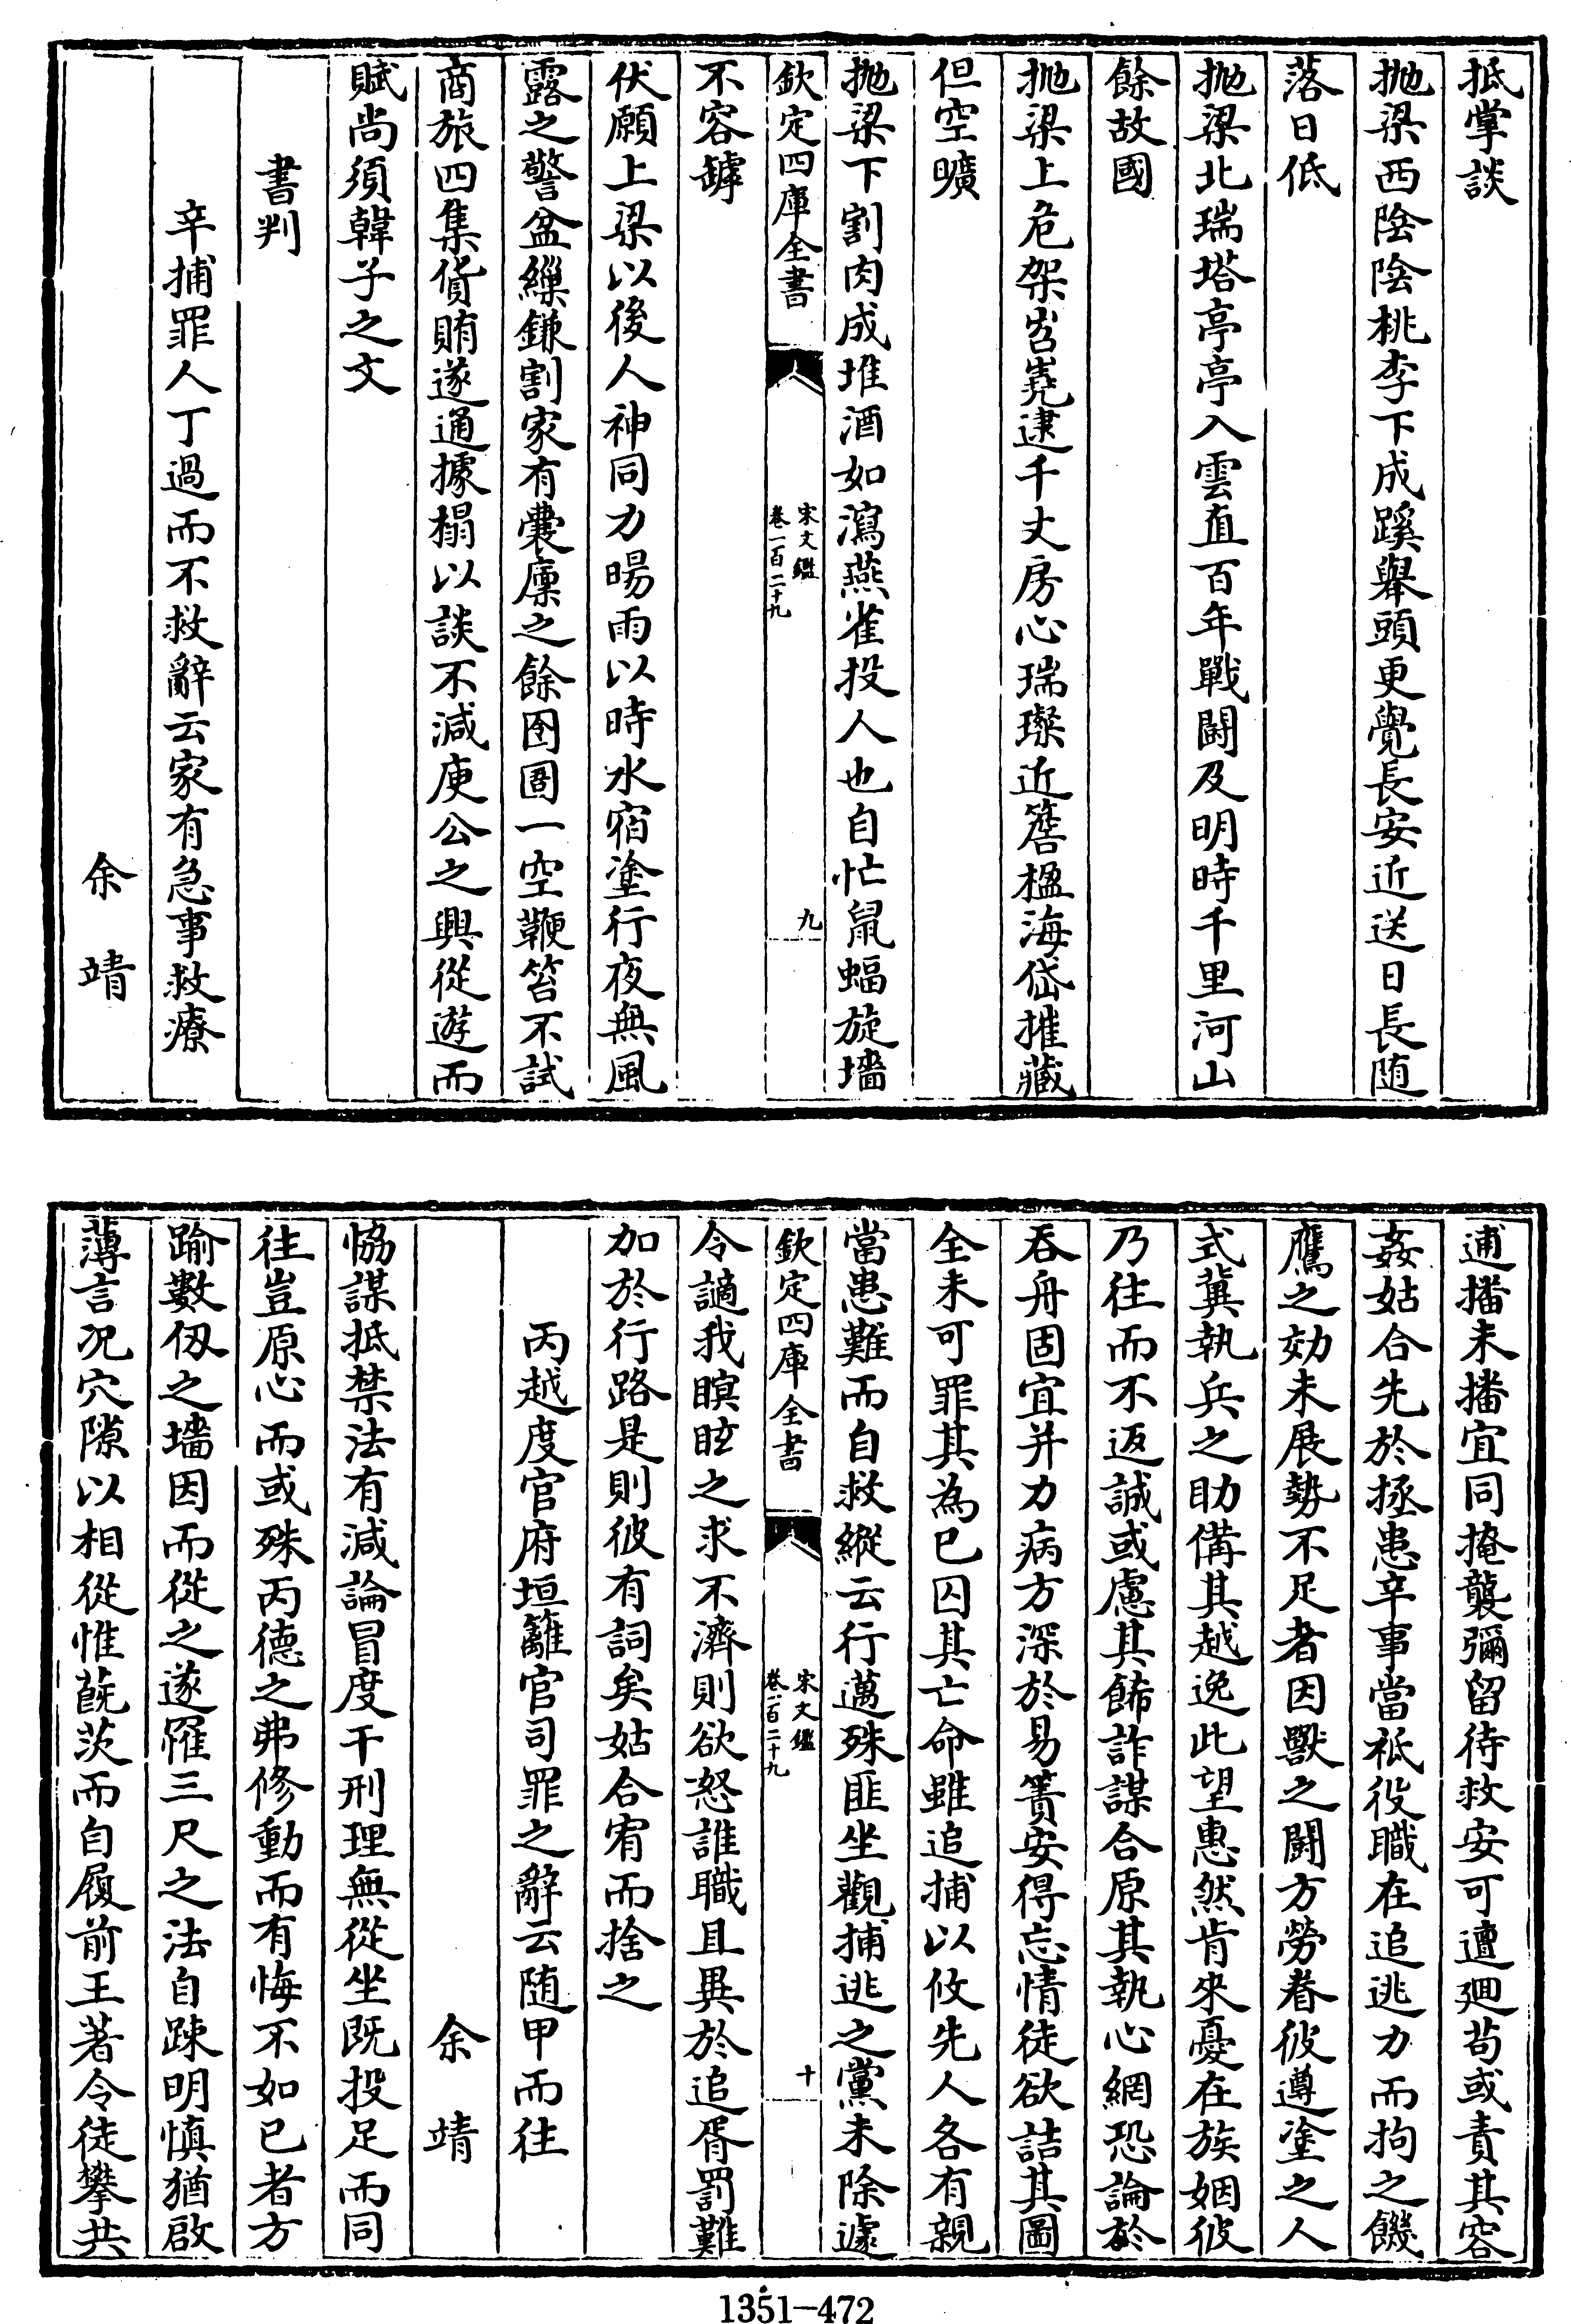 抵掌談
抛梁西陰陰桃李下成蹊舉頭更覺長安近送日長随
落日低
抛梁北瑞塔亭亭入雲直百年戰鬭及明時千里河山
餘故國
抛梁上危架岧嶤逮千丈房心瑞璨近簷楹海岱摧藏
但空曠
抛梁下割肉成堆酒如瀉燕雀投人也自忙鼠蝠旋墻
欽定四庫全書
宋文鑑
卷一百二十九
九
不容罅
伏願上梁以後人神同力暘雨以時水宿塗行夜無風
露之警盆繅鎌割家有囊廪之餘囹圄一空鞭笞不試
商旅四集貨賄遂通據榻以談不減庾公之興從遊而
賦尚須韓子之文
書判
辛捕罪人丁過而不救辭云家有急事救療
余靖
逋播未播宜同掩襲彌留待救安可邅廻苟或責其容
姦姑合先於拯患辛事當祗役職在追逃力而拘之饑
鷹之効未展勢不足者因獸之鬭方勞眷彼遵塗之人
式冀執兵之助備其越逸此望惠然肯來憂在族姻彼
乃往而不返誠或慮其飾詐謀合原其執心網恐論於
吞舟固宜并力病方深於易簀安得忘情徒欲詰其圖
全未可罪其為已囚其亡命雖追捕以攸先人各有親
當患難而自救縱云行邁殊匪坐觀捕逃之黨未除遽
欽定四庫全書
宋文鑑
卷一百二十九
十
令讁我瞑眩之求不濟則欲怒誰職且異於追胥罰難
加於行路是則彼有詞矣姑合宥而捨之
丙越度官府垣籬官司罪之辭云随甲而往
余靖
恊謀抵禁法有減論冒度干刑理無從坐既投足而同
往豈原心而或殊丙德之弗修動而有悔不如已者方
踰數仭之墻因而從之遂罹三尺之法自踈明慎猶啟
薄言况穴隙以相從惟蓺茨而自履前王著令徒攀共
1351-472